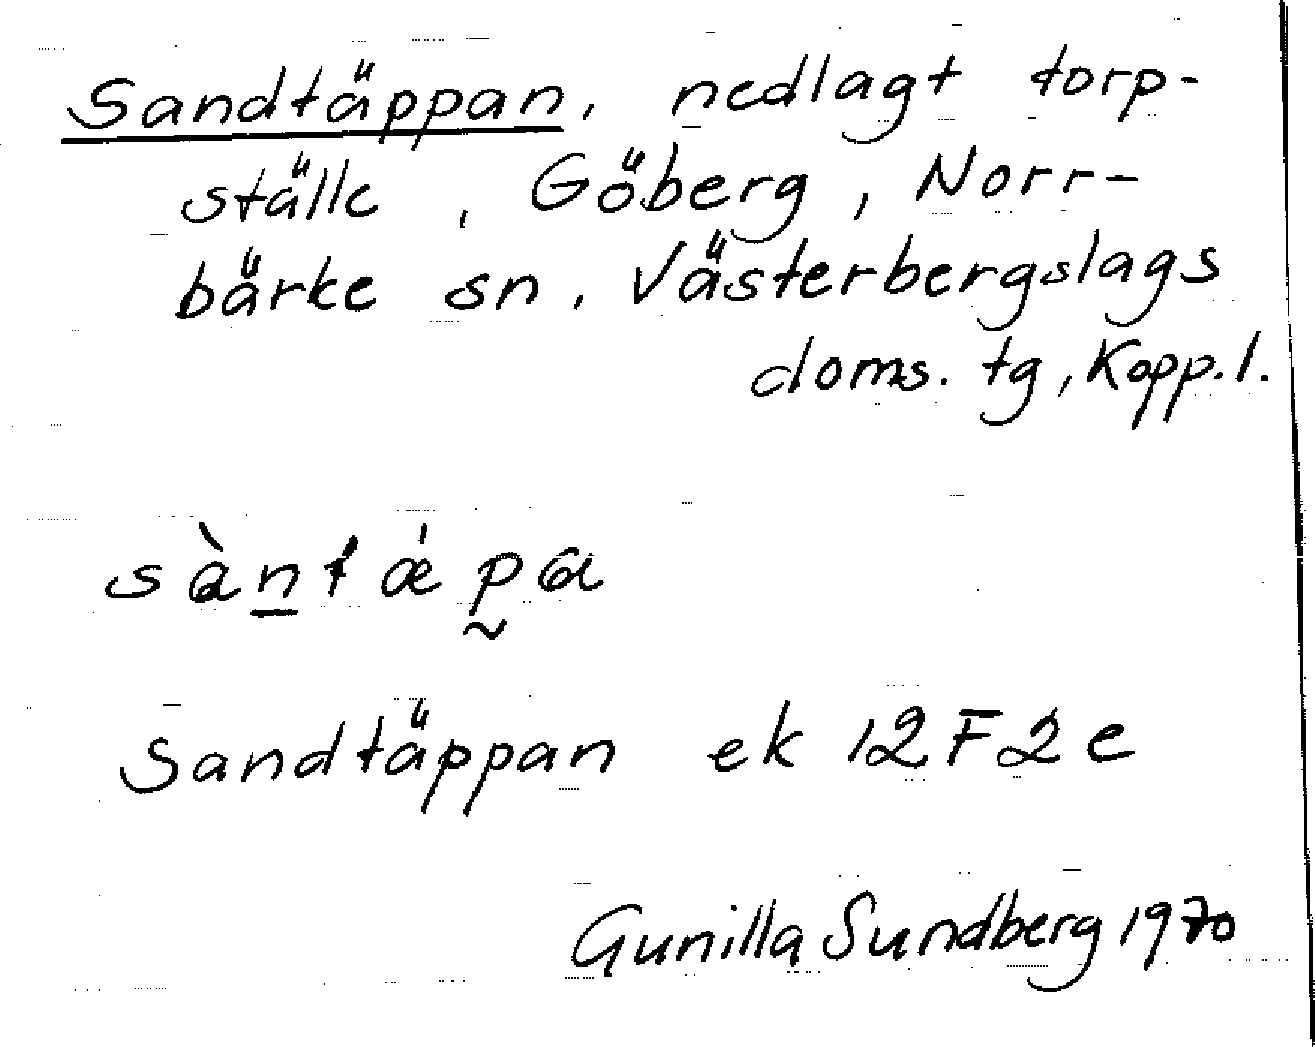 Sandtäppan, nedlagt torp-
ställe, Göberg, Norr-
bärke sn, Västerbergslags
doms. tg, Kopp.l.
sàn̲tǽp̰a
Sandtäppan ek 12F2e
Gunilla Sundberg 1970